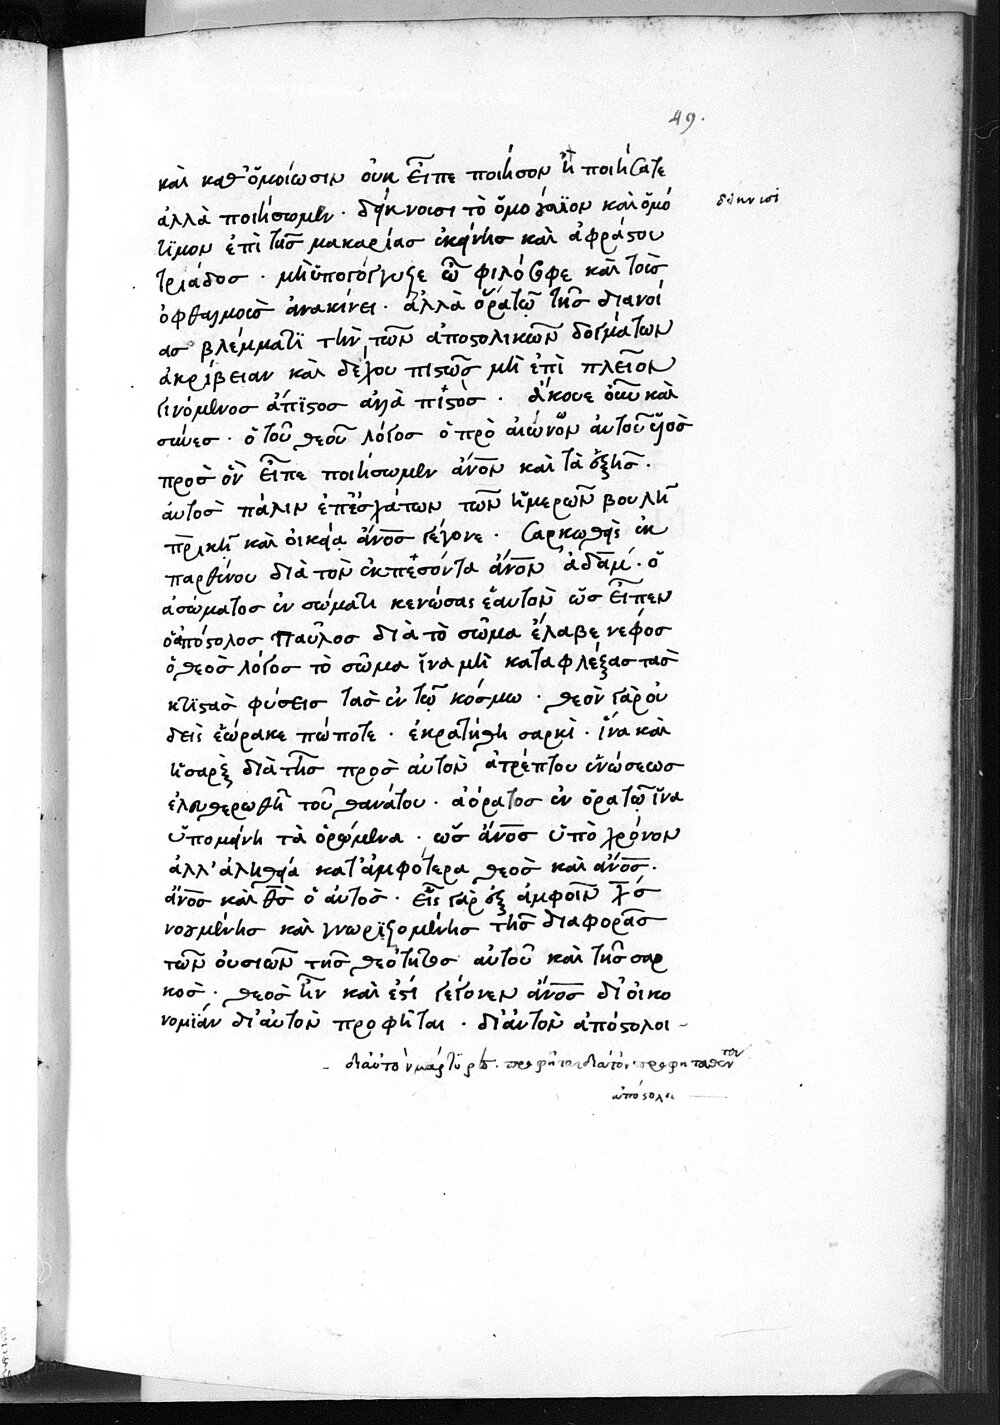 49.
καὶ καθ' ὁμοίωσιν οὐκ εἶπε ποιήσον ἢ ποιήσατε
ἀλλὰ ποιήσωμεν · δείκνυσι τὸ ὁμοούσϊον καὶ ὁμό
δείκνυσι
τϊμον ἐπὶ τῆς μακαρίας ἐκείνης καὶ ἀφράστου
τριάδος · μὴ ὑπογόγγυζε ὦ φιλόσοφε καὶ τοῖς
ὀφθαλμοῖς ἀνακίνει · ἀλλὰ ὁράτω τῆς διανοί
ας βλέμματϊ τὴν τῶν ἀποστολικῶν δογμάτων
ἀκρίβειαν καὶ δέχου πιστῶς μὴ ἐπὶ πλεῖον
γινόμενος ἄπϊστος ἀλλὰ πϊστός · ἄκουε οὖν καὶ
σύνες · ὁ τοῦ θεοῦ λόγος ὁ πρὸ αἰώνων αὐτοῦ υἱὸς
πρὸς ὃν εἶπε ποιήσωμεν ἄνον καὶ τὰ ἑξῆς ·
αὐτὸς πάλιν ἐπ' ἐσχάτων τῶν ἡμερῶν βουλῆ
πρικῆ καὶ οἰκεία ἄνος γέγονε · σαρκωθεὶς ἐκ
παρθένου διὰ τὸν ἐκπεσόντα ἄνον ἀδάμ · ὁ
ἀσώματος ἐν σώματι κενώσας ἑαυτὸν ὡς εἶπεν
ὁ ἀπόστολος παῦλος διὰ τὸ σῶμα ἔλαβε νέφος
ὁ θεὸς λόγος τὸ σῶμα ἵνα μὴ καταφλέξας τὰς
κτϊστὰς φύσεις τὰς ἐν τῷ κόσμω · θεὸν γὰρ οὐ
δεὶς ἑώρακε πώποτε · ἐκρατήθη σαρκὶ · ἵνα καὶ
ἡ σαρξ διὰ τῆς πρὸς αὐτὸν ἀτρέπτου ἑνώσεως
ἐλευθερωθῆ τοῦ θανάτου · ἀόρατος ἐν ὁρατῶ ἵνα
ὑπομείνη τὰ ὁρώμενα · ὡς ἄνος ὑπὸ χρόνον
ἀλλ' ἀληθεία κατ' ἀμφότερα θεὸς καὶ ἄνος ·
ἄνος καὶ θς ὁ αὐτὸς · εἷς γὰρ ἐξ ἀμφοῖν χς
νοουμένης καὶ γνωριζομένης τῆς διαφορᾶς
τῶν οὐσιῶν τῆς θεότητος αὐτοῦ καὶ τῆς σαρ
κὸς · θεὸς ἦν καὶ ἐστί γέγονεν ἄνος δι' οἰκο
νομϊάν δι' αὐτὸν προφῆται · δι' αὐτὸν ἀπόστολοι -
- δι αὐτὸν μάρτυρες · προφῆται διὰ τὸν προφητευθέντα
ἀπόστολοι